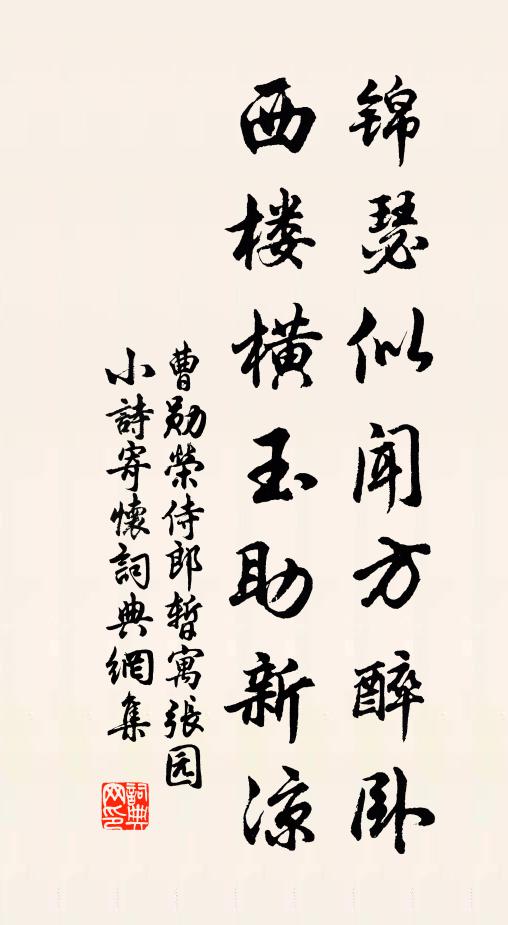 锦瑟似闻方醉卧
西楼横玉助新凉
曹勋荣侍郎暂寓张园
小詩寄懷詞典網集
詞典网印